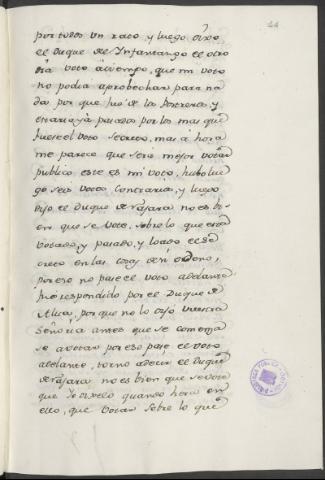 por todos un rato, y luego dixo
el Duque del Infantazgo el otro
dia voto a tiempo, que mi voto
no podia aprobechar para na
da por que fue de los Postreros y
estaria ya pasado por los mas que
fuese el voto secreto, mas ahora
me parece que sera mejor votar
publico este es mi voto, hubo lue
go seis votos contrarios, y luego
dijo el Duque de Najara no es bi
en que se vote, sobre lo que esta
votado, y pasado, y loado el se
creto en las cosas del orden,
por eso no pase el voto adelante
fue respondido por el Duque de
Alva, por que no lo dijo vuestra
Señoria antes que se comenza
se a votar por eso pase el voto
adelante, torno a decir el Duque
de Najara no es bien que se vote
que se dixelo quando hora en
ello, que votar sobre lo que